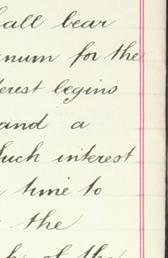 hall bear
annum for the
terest begins
and a
such interest
time to
the
of the